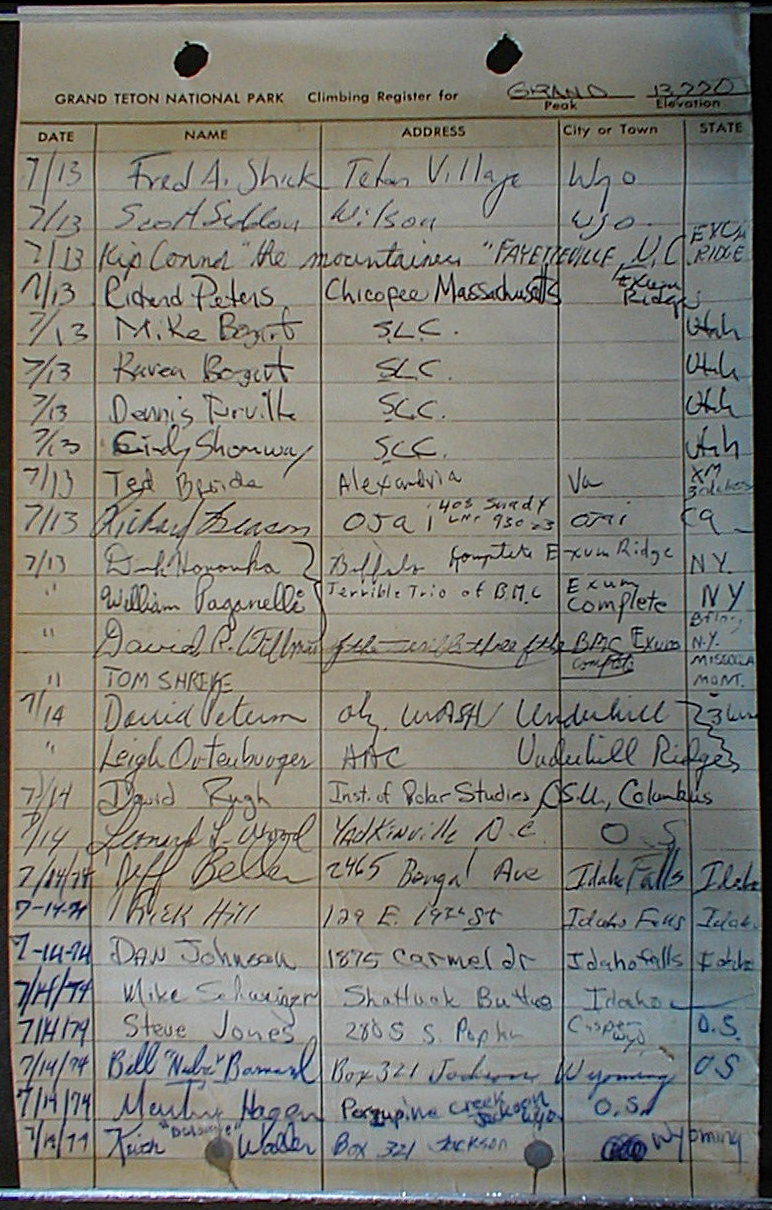 GRAND TETON NATIONAL PARK Climbing Register for GRAND 13,770
Peak Elevation
DATE NAME ADDRESS City or Town STATE
7/13 Fred A. Shick Teton Village Wyo
7/13 Scott Wilson Wyo.
7/13 Kip Connor "the mountaineer" FAYETTEVILLE, N.C. EXUM RIDGE
7/13 Richard Peters Chicopee Massachusetts Exum Ridge
7/13 Mike S.L.C. Utah
7/13 Karen S.L.C. Utah
7/13 Dennis Turville S.L.C. Utah
7/13 Cindy Shumway S.L.C. Utah
7/13 Ted Alexandria Va XM
7/13 Richard Ojai 408 Shady Ln. 93023 Ojai Ca
7/13 Buffalo Komplete Exum Ridge N.Y.
" William Paganelli Terrible Trio of B.M.C Exum Complete NY
" David R. of the three of the BMC Exum complete N.Y.
" TOM SHREVE MISSOULA MONT.
7/14 David WASH Underhill
" Leigh Ortenburger AAC Underhill Ridge
7/14 David Rugh Inst. of Polar Studies, O.S.U., Columbus
7/14 Leonard L. Wood Yadkinville N.C. O.S
7/14/74 Jeff 2465 Bengal Ave Idaho Falls Idaho
7-14-74 Rick Hill 129 E. 19th St Idaho Falls Idaho
7-14-74 DAN Johnson 1875 Carmel dr Idaho falls Idaho
7/14/74 Mike Shattuck Butte Idaho
7/14/74 Steve Jones 2805 S. Casper Wyo O.S.
7/14/74 Bill "Nuke" Barnard Box 321 Jackson Wyoming OS
7/14/74 Hagen Porcupine Creek Jackson Wyo O.S.
7/14/74 Keith Waller Box 321 Jackson Wyoming